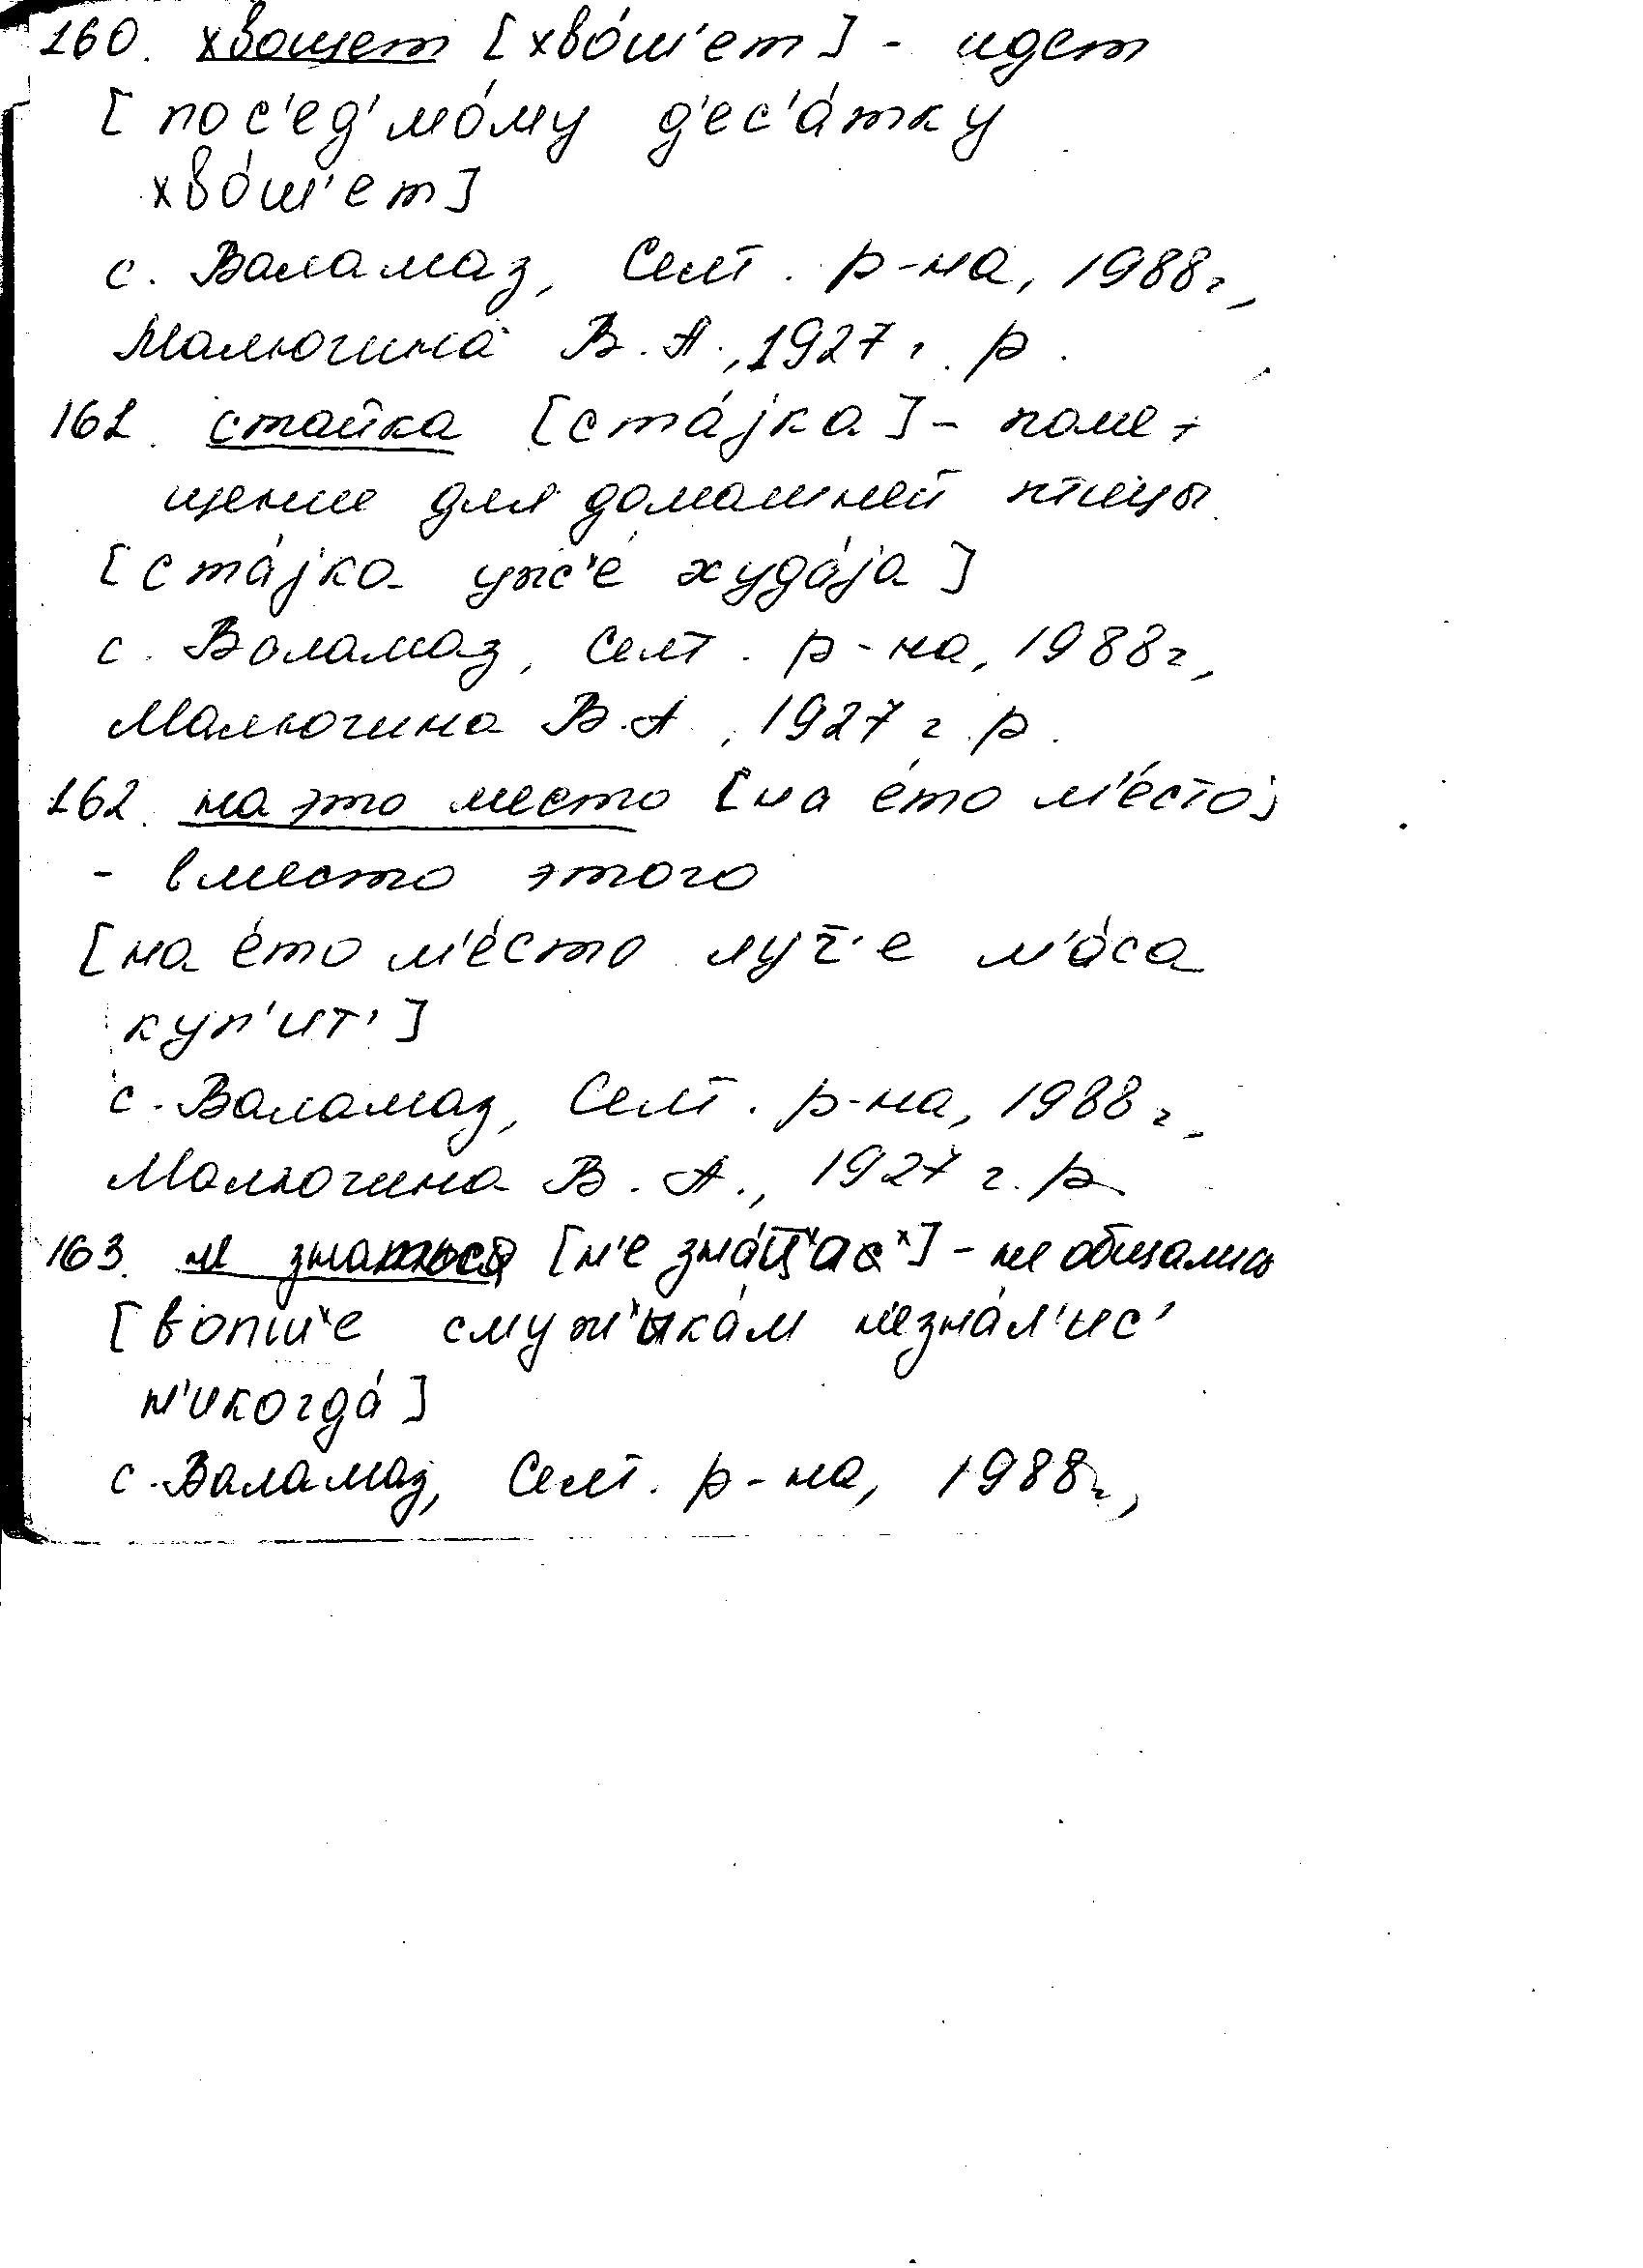 160. хвощет [хво́ш'ет] - идет
[пос'ед'мо́му д'ес'а́тку
хво́ш'ет]
с. Валамаз, Селт. р-на, 1988г.,
Малюгина В.А., 1927 г.р.
161. стайка [ста́jка] - поме-
щение для домашней птицы
[ста́jка уж'е́ худа́jа]
с. Валамаз, Селт. р-на, 1988г.,
Малюгина В.А., 1927 г.р.
162. на это место [на е́то м'е́сто]
- вместо этого
[на е́то м'е́сто луч̄'е м'а́са
куп'ит']
с. Валамаз, Селт. р-на, 1988 г.,
Малюгина В.А., 1927 г.р.
163. не знаться - не общались
[вопш'е смуж'ыка́м незна́л'ис'
н'икогда́]
с. Валамаз, Селт. р-на, 1988г.,